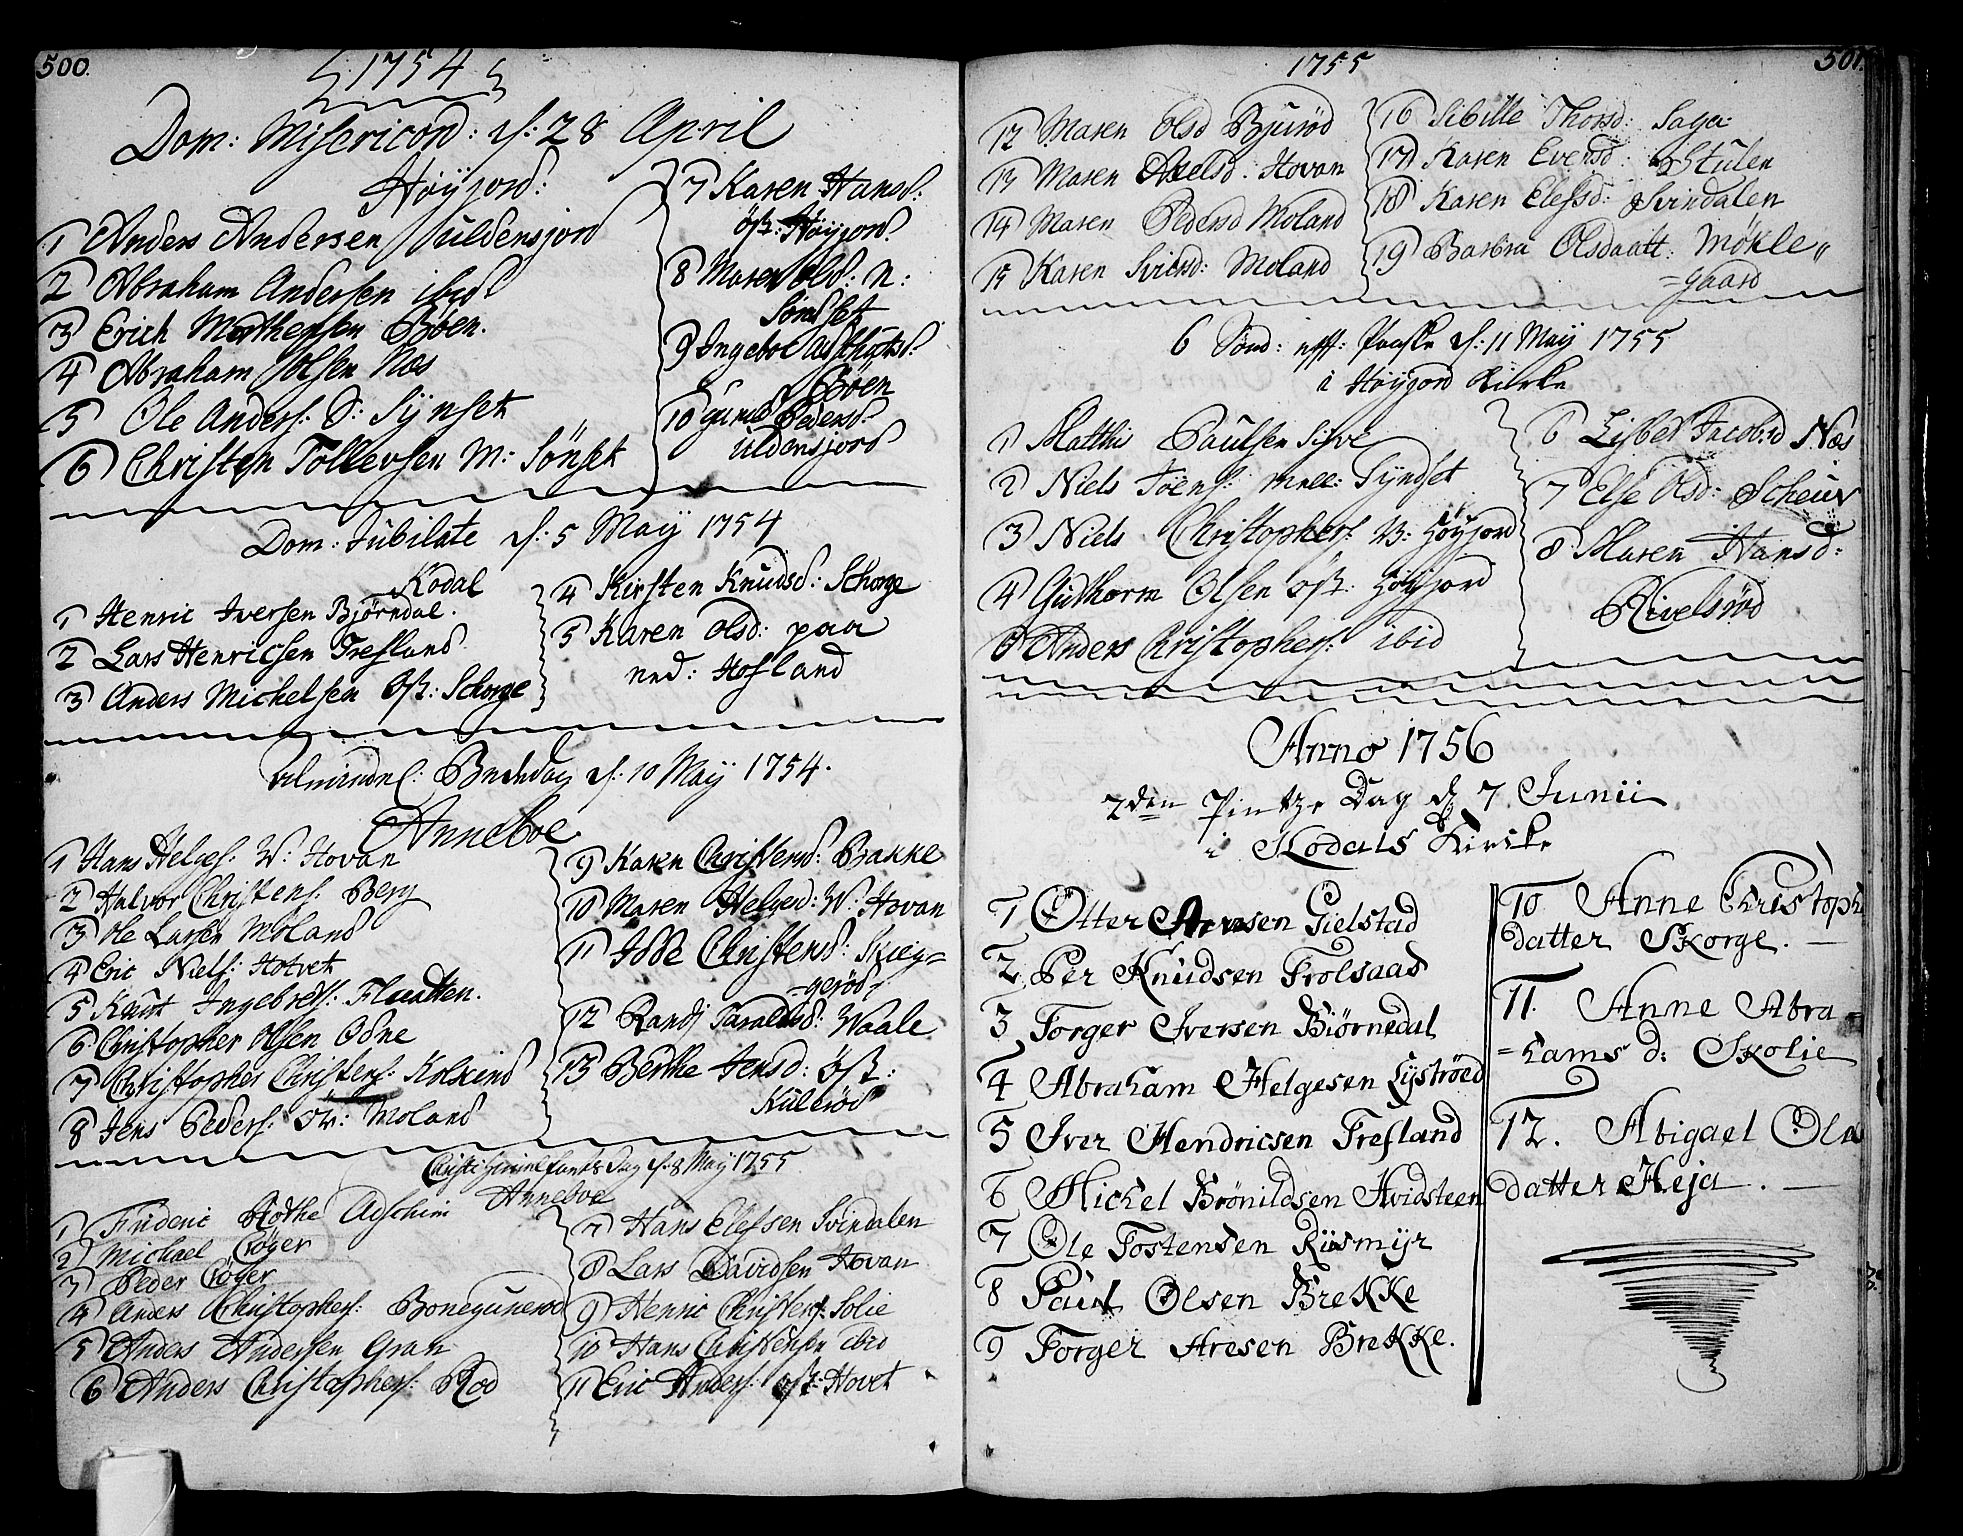 500.
1754
Dom: Misericord: d: 28 April
Høyjord:
1 Anders Andersen Huldensjord
2 Abraham Andersen ibid
3 Erich Matthessen Böen.
4 Abraham Olsen Næs
5 Ole Anders: S: Synset
6 Christen Tollevsen M: Sönset
7 Karen Hansd:
öst: Höyjord
8 Maren Olsd: N:
Sönset
9 Ingebor
Böen
10 Pedersd:
uldensjord
Dom: Jubilate d: 5 May 1754
Kodal
1 Henric Iversen Bjørndal.
2 Lars Henricsen Trefland
3 Anders Michelsen öst: Schorge
4 Kirsten Knudsd: Schorge
5 Karen Olsd: paa
ned: Hofland
Almindel: Bededag d: 10 May 1754.
Anneboe
1 Hans Helges: W: Hovan
2 Halvor Christens: Berg
3 Ole Larsen Moland
4 Eric Niels: Hotvet
5 Knut Ingebrets: Flaatten.
6 Christopher Olsen Odne
7 Christopher Christens: Kolkind
8 Jens Peders: öv: Moland
9 Karen Christensd: Bakke
10 Maren Helgesd: W: Hovan
11 Idde Christensd: Skieg=
=gerød
12 Randj Taraldsd: Waale
13 Berthe Jensd: öst:
Kullerød
Christi Himmelfarts Dag d: 8 May 1755
Anneboe
1 Frideric Rothe Aschim
2 Michael Cröger
3 Peder Cröger
4 Anders Christophers: Bonegunerød
5 Anders Andersen Gran
6 Anders Christophers: Röd
7 Hans Elefsen Svindalen
8 Lars Davidsen Hovan
9 Henric Christens: Solie
10 Hans Christensen ibid
11 Eric Anders: öst: Hovet
1755
501.
12 Maren Olsd Bjuröd
13 Maren Axelsd: Hovan
14 Maren Pedersd Moland
15 Karen Sversd: Moland
16 Sibille Thorsd: Saga
17 Karen Eversd: Stulen
18 Karen Elefsd: Svindalen
19 Barbra Olsdaatt: Mökle,,
=gaard
6 Sönd: efft: Paaske d: 11 May 1755
i Høyjord Kirke
1 Matthis Paulsen Sisve
2 Niels Joens: mell: Syndset
3 Niels Christophers: W: Höyjord
4 Guthorm Olsen öst: Höyjord
5 Anders Christophers: ibid
6 Lisbet Jacobsd Næs
7 Else Olsd: Scheuv
8 Maren Hansd:
Rivelsröd
Anno 1756
2den Pintze Dag d 7 Junii
i Kodals Kirke
1 Otter Arnesen Gielstad
2 Per Knudsen Trolsaas
3 Torger Iversen Biørnedal
4 Abraham Helgesen Lystrøed
5 Iver Hendricsen Trefland
6 Mickel Brönildsen Hvidsteen
7 Ole Tostensen Riismyr
8 Paul Olsen Brekke
9 Torger Aresen Brekke.
10 Anne Christoph
datter Skorge.
11. Anne Abra=
=hams d: Skolie
12. Abigael Ols
datter Heja.